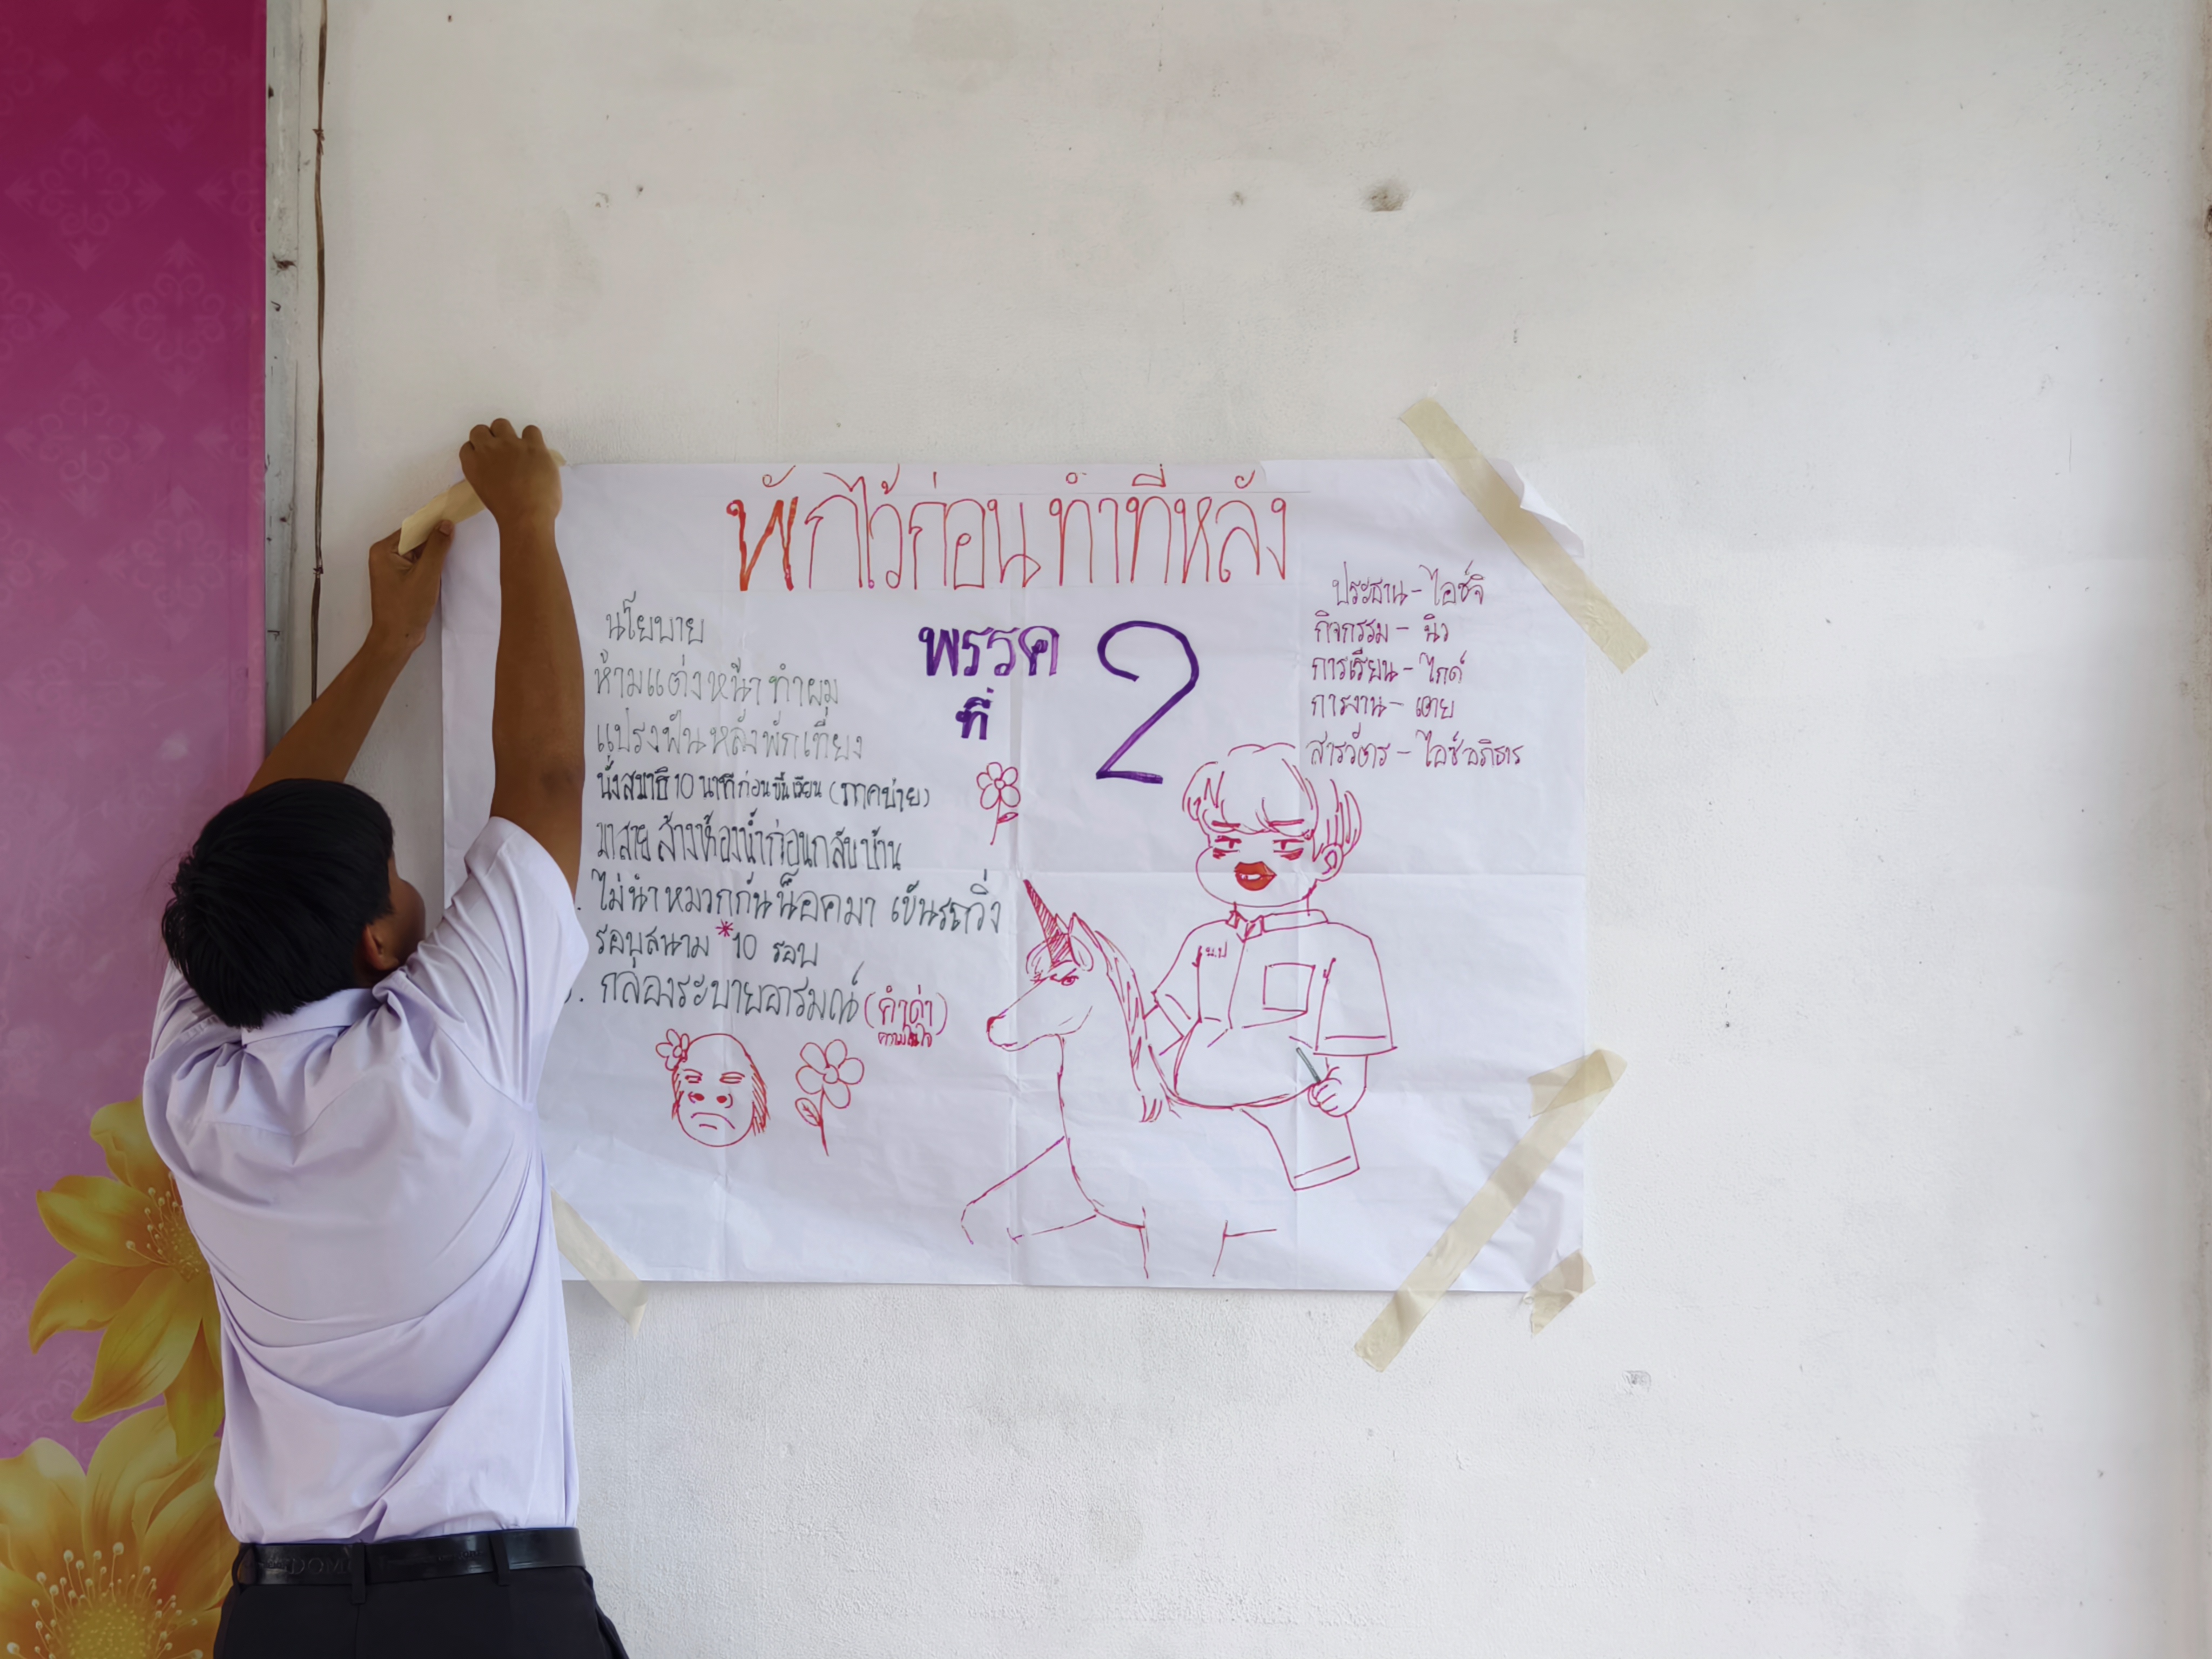 พักไว้ก่อน ทำทีหลัง
พรรค
ที่
2
นโยบาย
ห้ามแต่งหน้า ทำผม
แปรงฟันหลังพักเที่ยง
นั่งสมาธิ 10 นาทีก่อนขึ้นเรียน (ภาคบ่าย)
มาสาย ล้างห้องน้ำก่อนกลับบ้าน
. ไม่นำหมวกกันน็อคมา เข็นรถวิ่ง
รอบสนาม *10 รอบ
. กล่องระบายอารมณ์ (คำด่า)
ประธาน - ไอซ์จิ
กิจกรรม - นิว
การเรียน - ไกด์
การงาน - เอย
สารวัตร - ไอซ์อภิธาร
น.ป